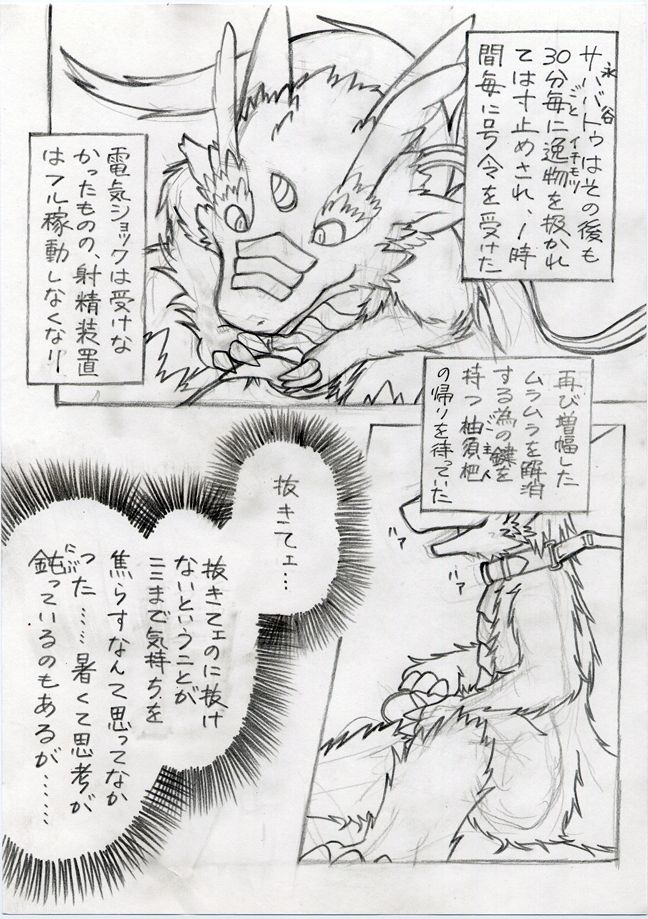 サババトゥはその後も
永谷
30分毎に逸物を扱かれ
ごと
イチモツ
ては寸止めされ、1時
間毎に号令を受けた
電気ショックは受けな
かったものの、射精装置
はフル稼動しなくなり
再び増幅した
ムラムラを解消
する為の鍵を
持つ柚須杷
ご主人
の帰りを待っていた
ハァ
ハァ
抜きてェ…
抜きてェのに抜け
ないということが
ここまで気持ちを
焦らすなんて思ってなか
った……暑くて思考が
鈍っているのもあるが……
にぶ